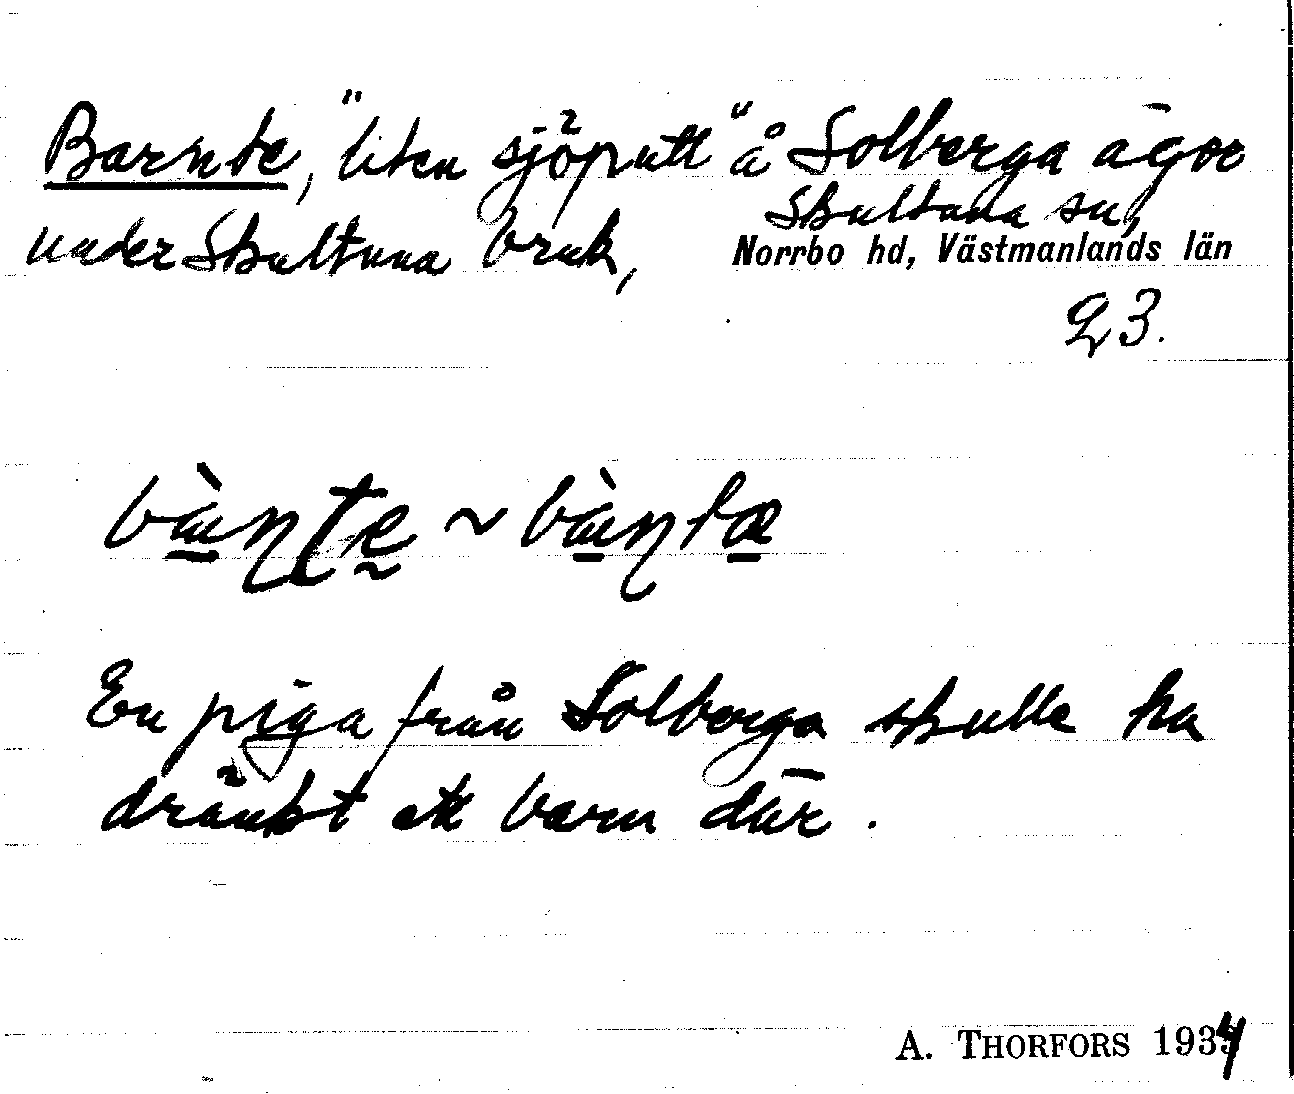 Barnte, "liten sjöputt" å Solberga ägor
Skultuna sn,
under Skultuna bruk, Norrbo hd, Västmanlands län
23.
En piga från Solberga skulle ha
dränkt ett barn där.
A. THORFORS 1934